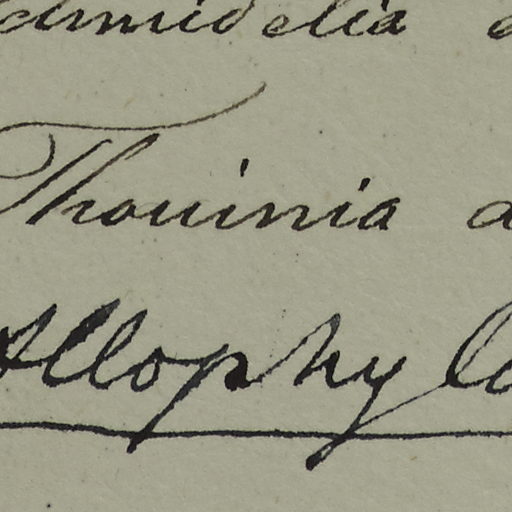 chmidelia a
Thouinia a
Allophylo